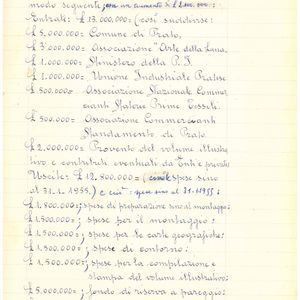 modo seguenti, con un aumento di £ 2.000.000:
Entrate: £ 13.000.000= (così suddivise:
£ 5.000.000= Comune di Prato,
£ 3'000.000= Associazione "Arte della Lana,
£ 1.000.000= Ministero della P. I.
£ 1.000.000= Unione Industriale Pratese
£ 500.000= Associazione Nazionale Commer
cianti Materie Prime Tessili.
£ 500.000= Associazione Commercianti
Mandamento di Prato
£ 2.000.000= Provento del volume illustra
tivo e contributi eventuali da Enti e privati
Uscite: £ 12.800.000= (cioè spese sino
al 31.1.1955.) e cioè: spese sino al 31-1-1955:
£ 1.800.000=; spese di preparazione sino al montaggio:
£ 1.500.000=; spese per il montaggio:
£ 1.500.000=; spese per le carte geografiche:
£ 1.500.000=; spese di contorno:
£ 1.500.000=; spese per la compilazione e
stampa del volume illustrativo:
£ 5.000.000=; fondo di riserva a pareggio: